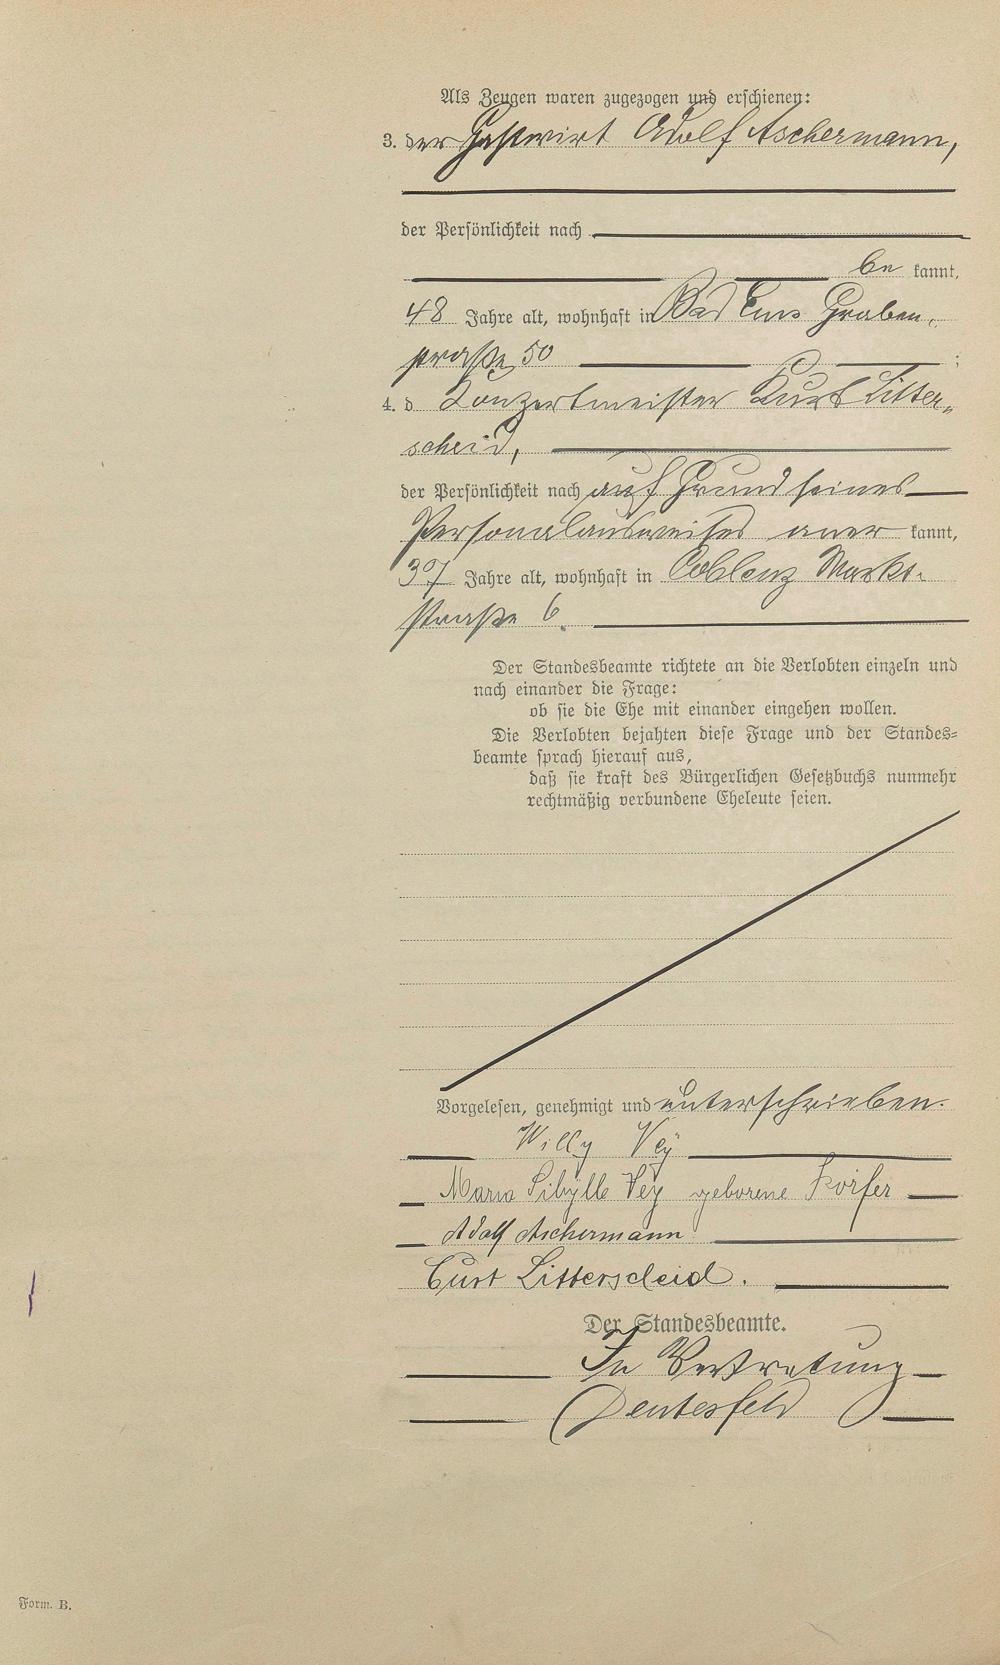 Als Zeugen waren zugezogen und erschienen:
3. der Gastwirt Adolf Aschermann,
der Persönlichkeit nach
be kannt,
48 Jahre alt, wohnhaft in Bad Ems Graben-
straße 50 ;
4. d Konzertmeister Kurt Litter-
scheid,
der Persönlichkeit nach auf Grund seines
Personalausweises aner kannt,
37 Jahre alt, wohnhaft in Coblenz Markt-
straße 6.
Der Standesbeamte richtete an die Verlobten einzeln und
nach einander die Frage:
ob sie die Ehe mit einander eingehen wollen.
Die Verlobten bejahten diese Frage und der Standes-
beamte sprach hierauf aus,
daß sie kraft des Bürgerlichen Gesetzbuchs nunmehr
rechtmäßig verbundene Eheleute seien.
Vorgelesen, genehmigt und unterschrieben.
Willy Vey
Maria Sibylle Vey geborene Körfer
Adolf Aschermann
Curt Litterscheid.
Der Standesbeamte.
In Vertretung
Deutesfeld
Form. B.